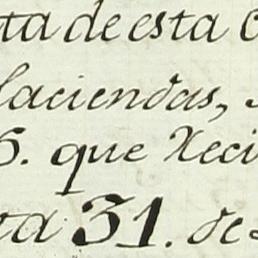 ta de esta
laciendas,
6. que Reci
ta 31. de